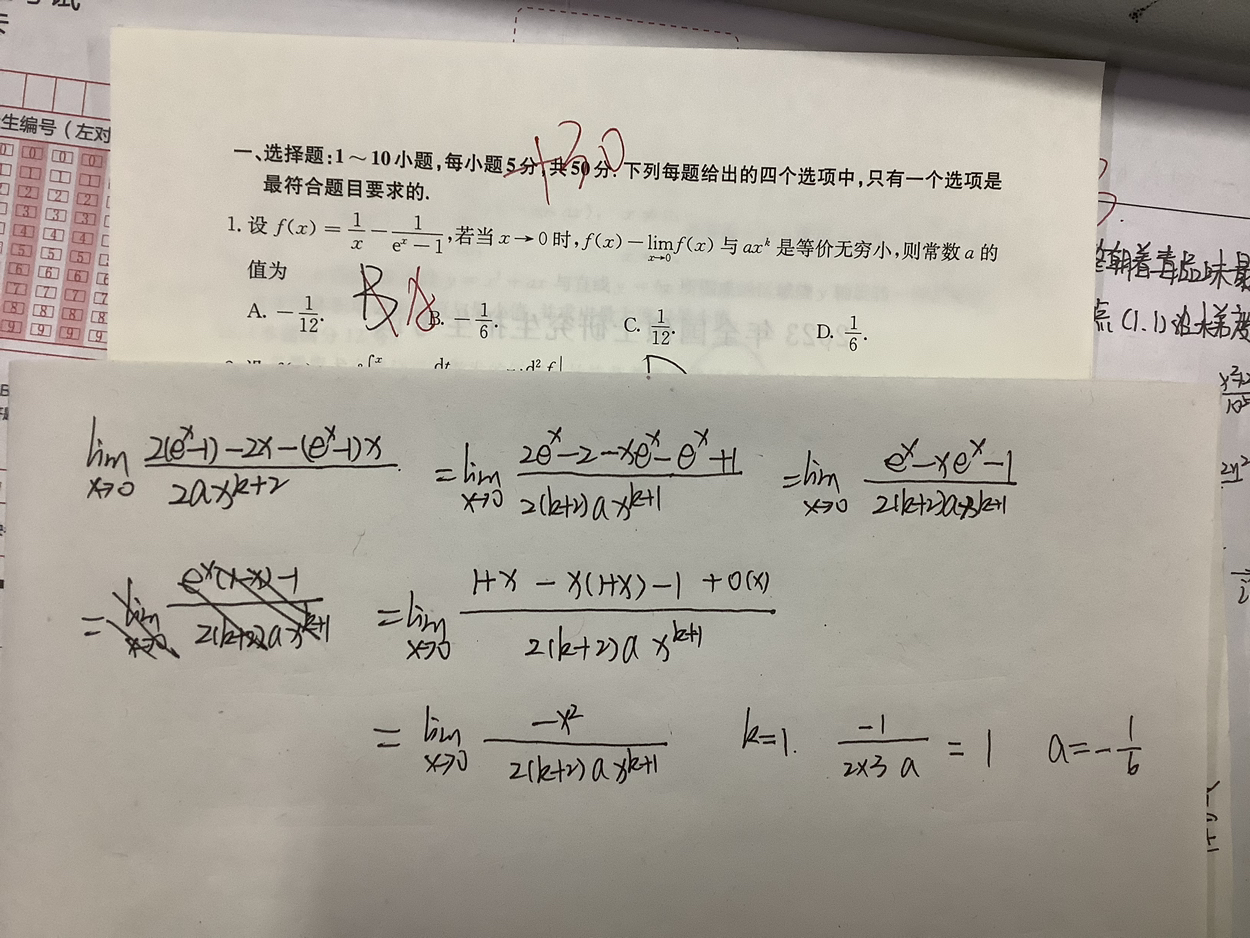 生编号（左对
一、选择题:1～10小题,每小题5分,共50分.下列每题给出的四个选项中,只有一个选项是
最符合题目要求的.
+30
1. 设 f(x) = 1/x − 1/(e^x − 1),若当 x→0 时,f(x) − lim_{x→0} f(x) 与 ax^k 是等价无穷小,则常数 a 的
值为
B A
A. −1/12. B. −1/6. C. 1/12. D. 1/6.
lim_{x→0} (2(e^x−1)−2x−(e^x−1)x)/(2ax^{k+2}) = lim_{x→0} (2e^x−2−xe^x−e^x+1)/(2(k+2)ax^{k+1}) = lim_{x→0} (e^x−xe^x−1)/(2(k+2)ax^{k+1})
= lim_{x→0} (e^x(1−x)−1)/(2(k+2)ax^{k+1}) = lim_{x→0} (1+x − x(1+x)−1 +o(x))/(2(k+2)ax^{k+1})
= lim_{x→0} (−x^2)/(2(k+2)ax^{k+1}) k=1. (−1)/(2×3a) = 1 a=−1/6
点(1,1)沿梯度